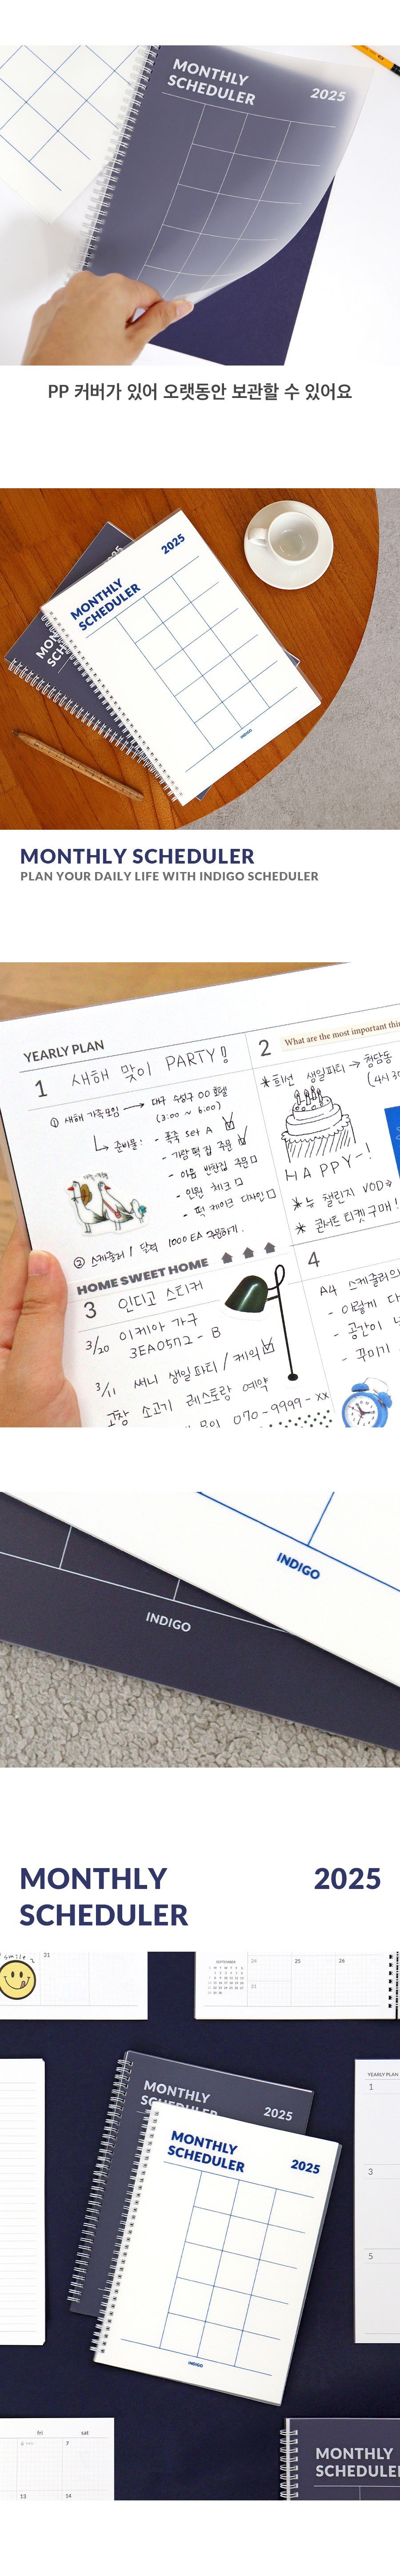 MONTHLY
SCHEDULER
2025
PP 커버가 있어 오랫동안 보관할 수 있어요
2025
MONTHLY
SCHEDULER
2025
INDIGO
MONTHLY SCHEDULER
PLAN YOUR DAILY LIFE WITH INDIGO SCHEDULER
YEARLY PLAN
1 새해 맞이 PARTY!
① 새해 가족모임 → 대구 수성구 00호텔
(3:00 ~ 6:00)
준비물: - 폭죽 set A
- 가랑떡집 주문
- 마음 반찬집 주문
- 인원 체크
- 떡 케이크 디자인
② 스케줄러 / 달력 1000 EA 구매하기.
2 What are the most important
희선 생일파티 → 청담동
HAPPY~!
뉴 챌린지 VOD
콘서트 티켓 구매!
HOME SWEET HOME
3 인디고 스티커
3/20 이케아 가구
3EA0572 - B
3/11 써니 생일파티 / 케익
고창 소고기 레스토랑 예약
070-9999-xx
4
A4 스케줄러의
- 이렇게
- 공간이
- 꾸미기
INDIGO
INDIGO
MONTHLY
SCHEDULER
2025
smile
31
SEPTEMBER
24
25
26
31
MONTHLY
2025
MONTHLY
SCHEDULER
2025
INDIGO
YEARLY PLAN
1
3
5
fri
sat
7
13
14
MONTHLY
SCHEDULER